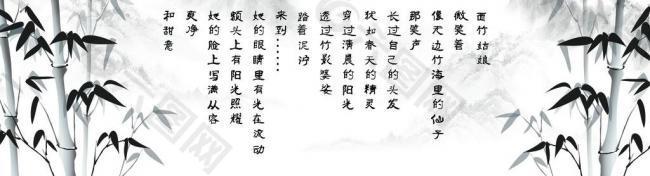 雨竹姑娘
微笑着
像天边竹海里的仙子
那笑声
长过自己的头发
犹如春天的精灵
穿过清晨的阳光
透过竹影婆娑
踏着泥泞
来到……
她的眼睛里有光在波动
额头上有阳光照耀
她的脸上写满从容
爽净
和甜意